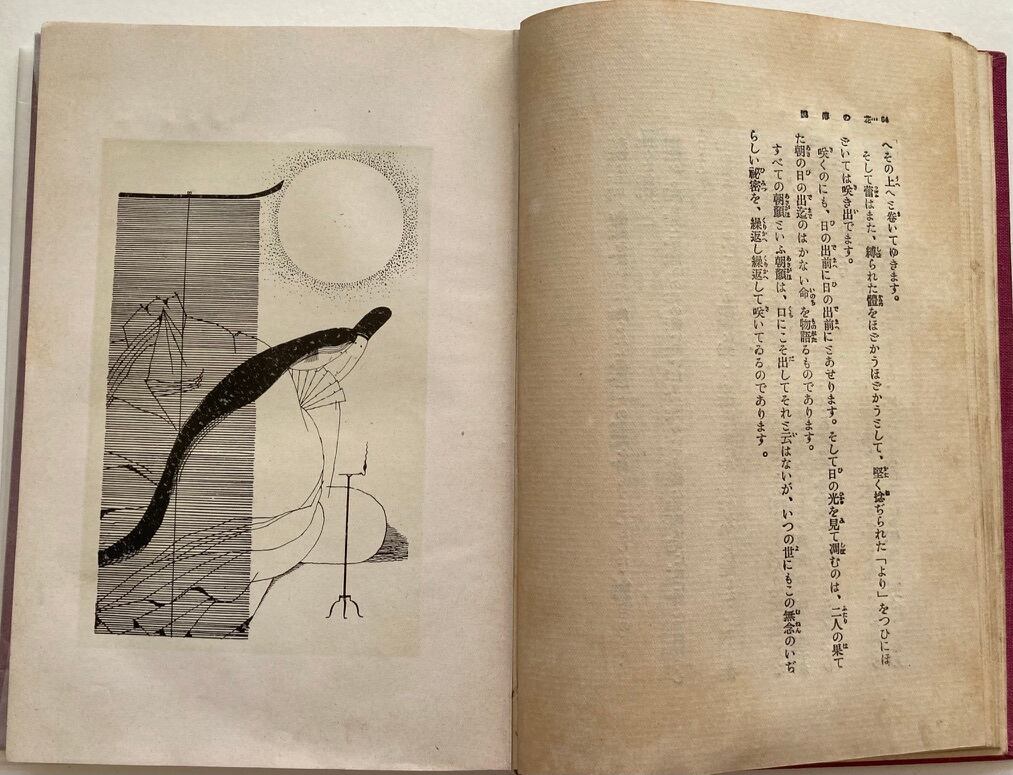 花の
へその上へと巻いてゆきます。
そして蕾はまた、縛られた體をほどかうほどかうとして、堅く捻ぢられた「より」をつひにほ
どいては咲き出でます。
咲くのにも、日の出前に日の出前にとあせります。そして日の光を見て凋むのは、二人の果て
た朝の日の出迄のはかない命を物語るものであります。
すべての朝顏といふ朝顏は、口にこそ出してそれと云はないが、いつの世にもこの無念のいぢ
らしい祕密を、繰返し繰返して咲いてゐるのであります。